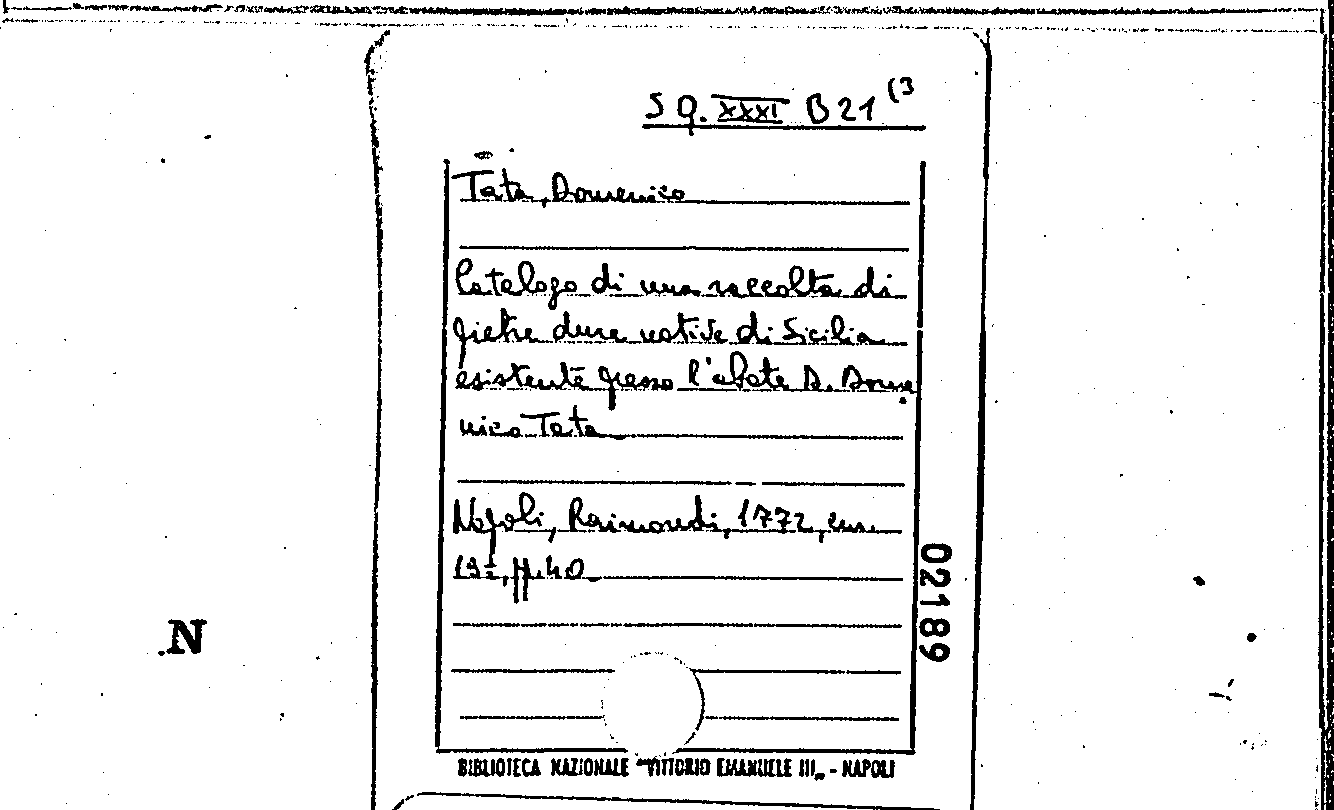 SQ. XXXI B 21 (3
Tata, Domenico
Catalogo di una raccolta di
pietre dure native di Sicilia
esistente presso l'abate D. Dome
nico Tata
Napoli, Raimondi, 1772, cm.
19½, pp. 40
02189
N
BIBLIOTECA NAZIONALE "VITTORIO EMANUELE III" - NAPOLI